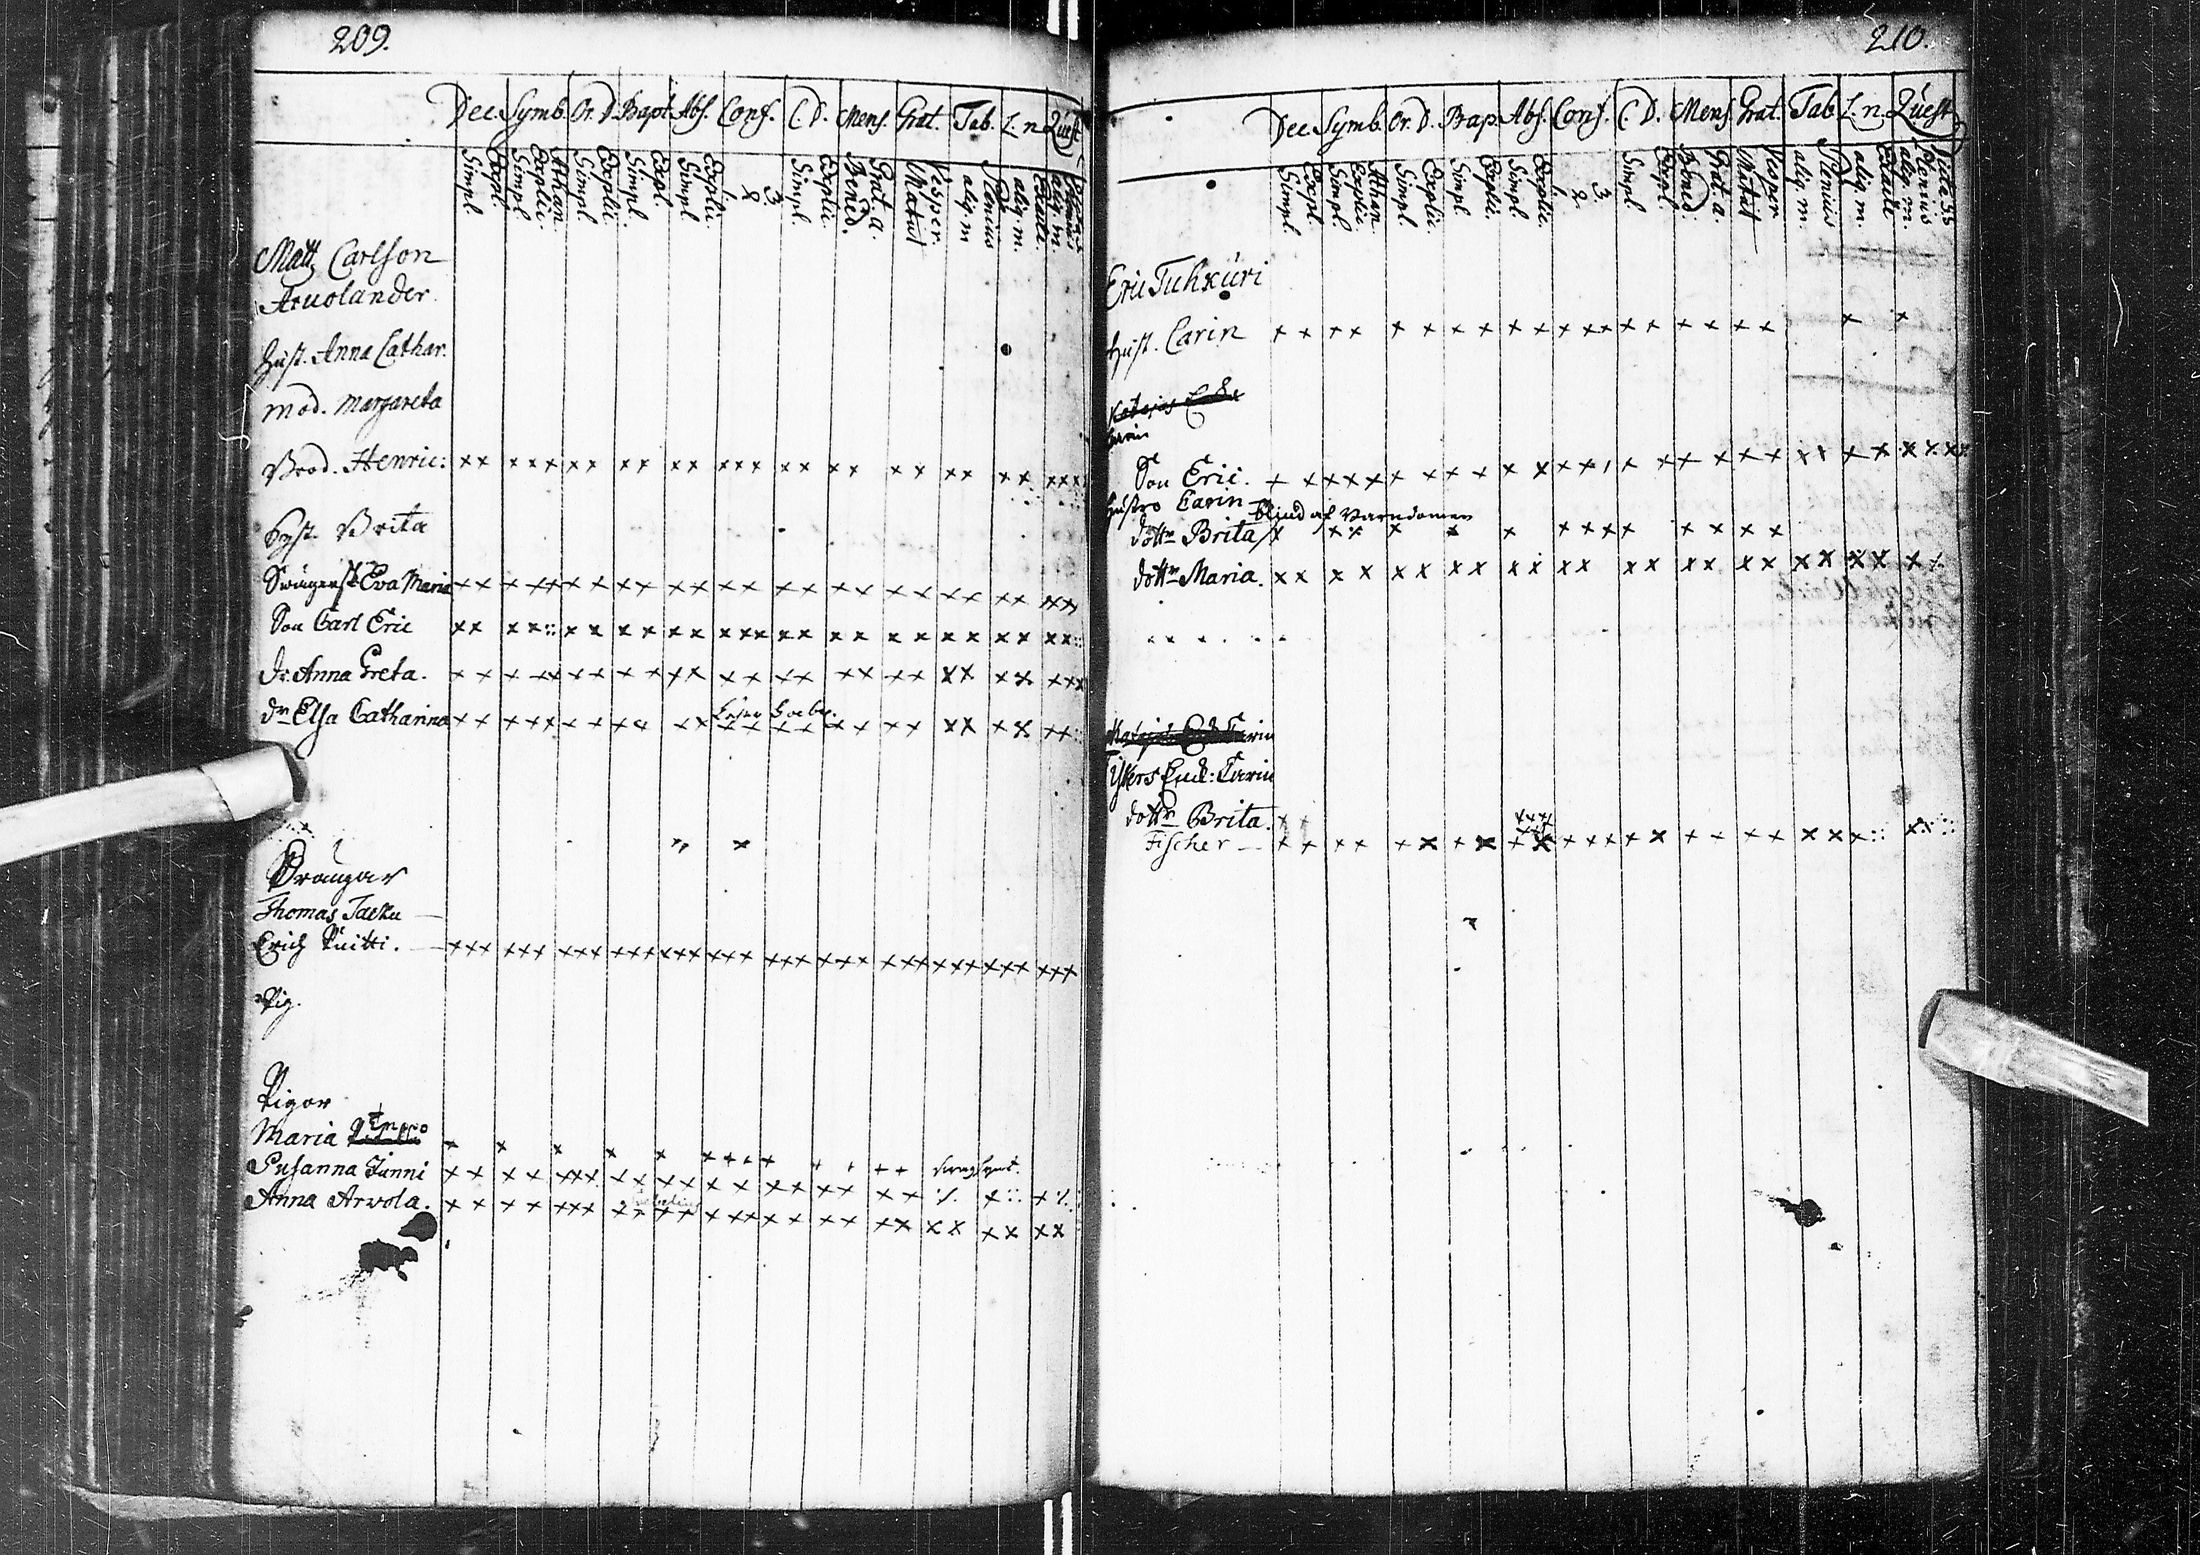 209.
Dec. Symb. Or. D. Bapt. Abs. Conf. C. D. Mens. Grat. Tab. L. n. Quest
Simpl. Expl. Simpl Explic. Athan. Simpl Explic. Simpl. Expl. Simpl Explic. 1 2 3 Simpl. Explic. Bened. Grat. a. Matut Vesper. aliq. m Plenius aliq. m. Exacte. aliq. m. Plenius
Matts Carlson
Arvolander
Hust. Anna Cathar.
mod. Margareta
Brod. Henric:
Syst. Brita
Swägersk Eva Maria
Son Carl Eric
dr. Anna Greta.
dr Elsa Catharina
Drängar
Thomas Jacku
Erich Knitti.
Pig.
Pigor
Maria
Susanna Junni
Anna Arvola.
210.
Dec. Symb. Or. D. Bap. Abs. Conf. C. D. Mens. Grat. Tab. L. n. Quest
Simpl. Expl. Simpl. Explic. Athan. Simpl. Explic. Simpl. Explic. Simpl. Explic. 1 2 3 Simpl. Expl. Bened. Grat. a. Matut Vesper aliq. m. Plenius aliq. m. Exacte aliq. m. Plenius
Eric Tuhkuri
Hust. Carin
Carin
Son Eric.
Hustro Carin
blind af Barndomen
dottr Brita
dottr Maria.
Enck: Carin
dottr Brita.
Fischer